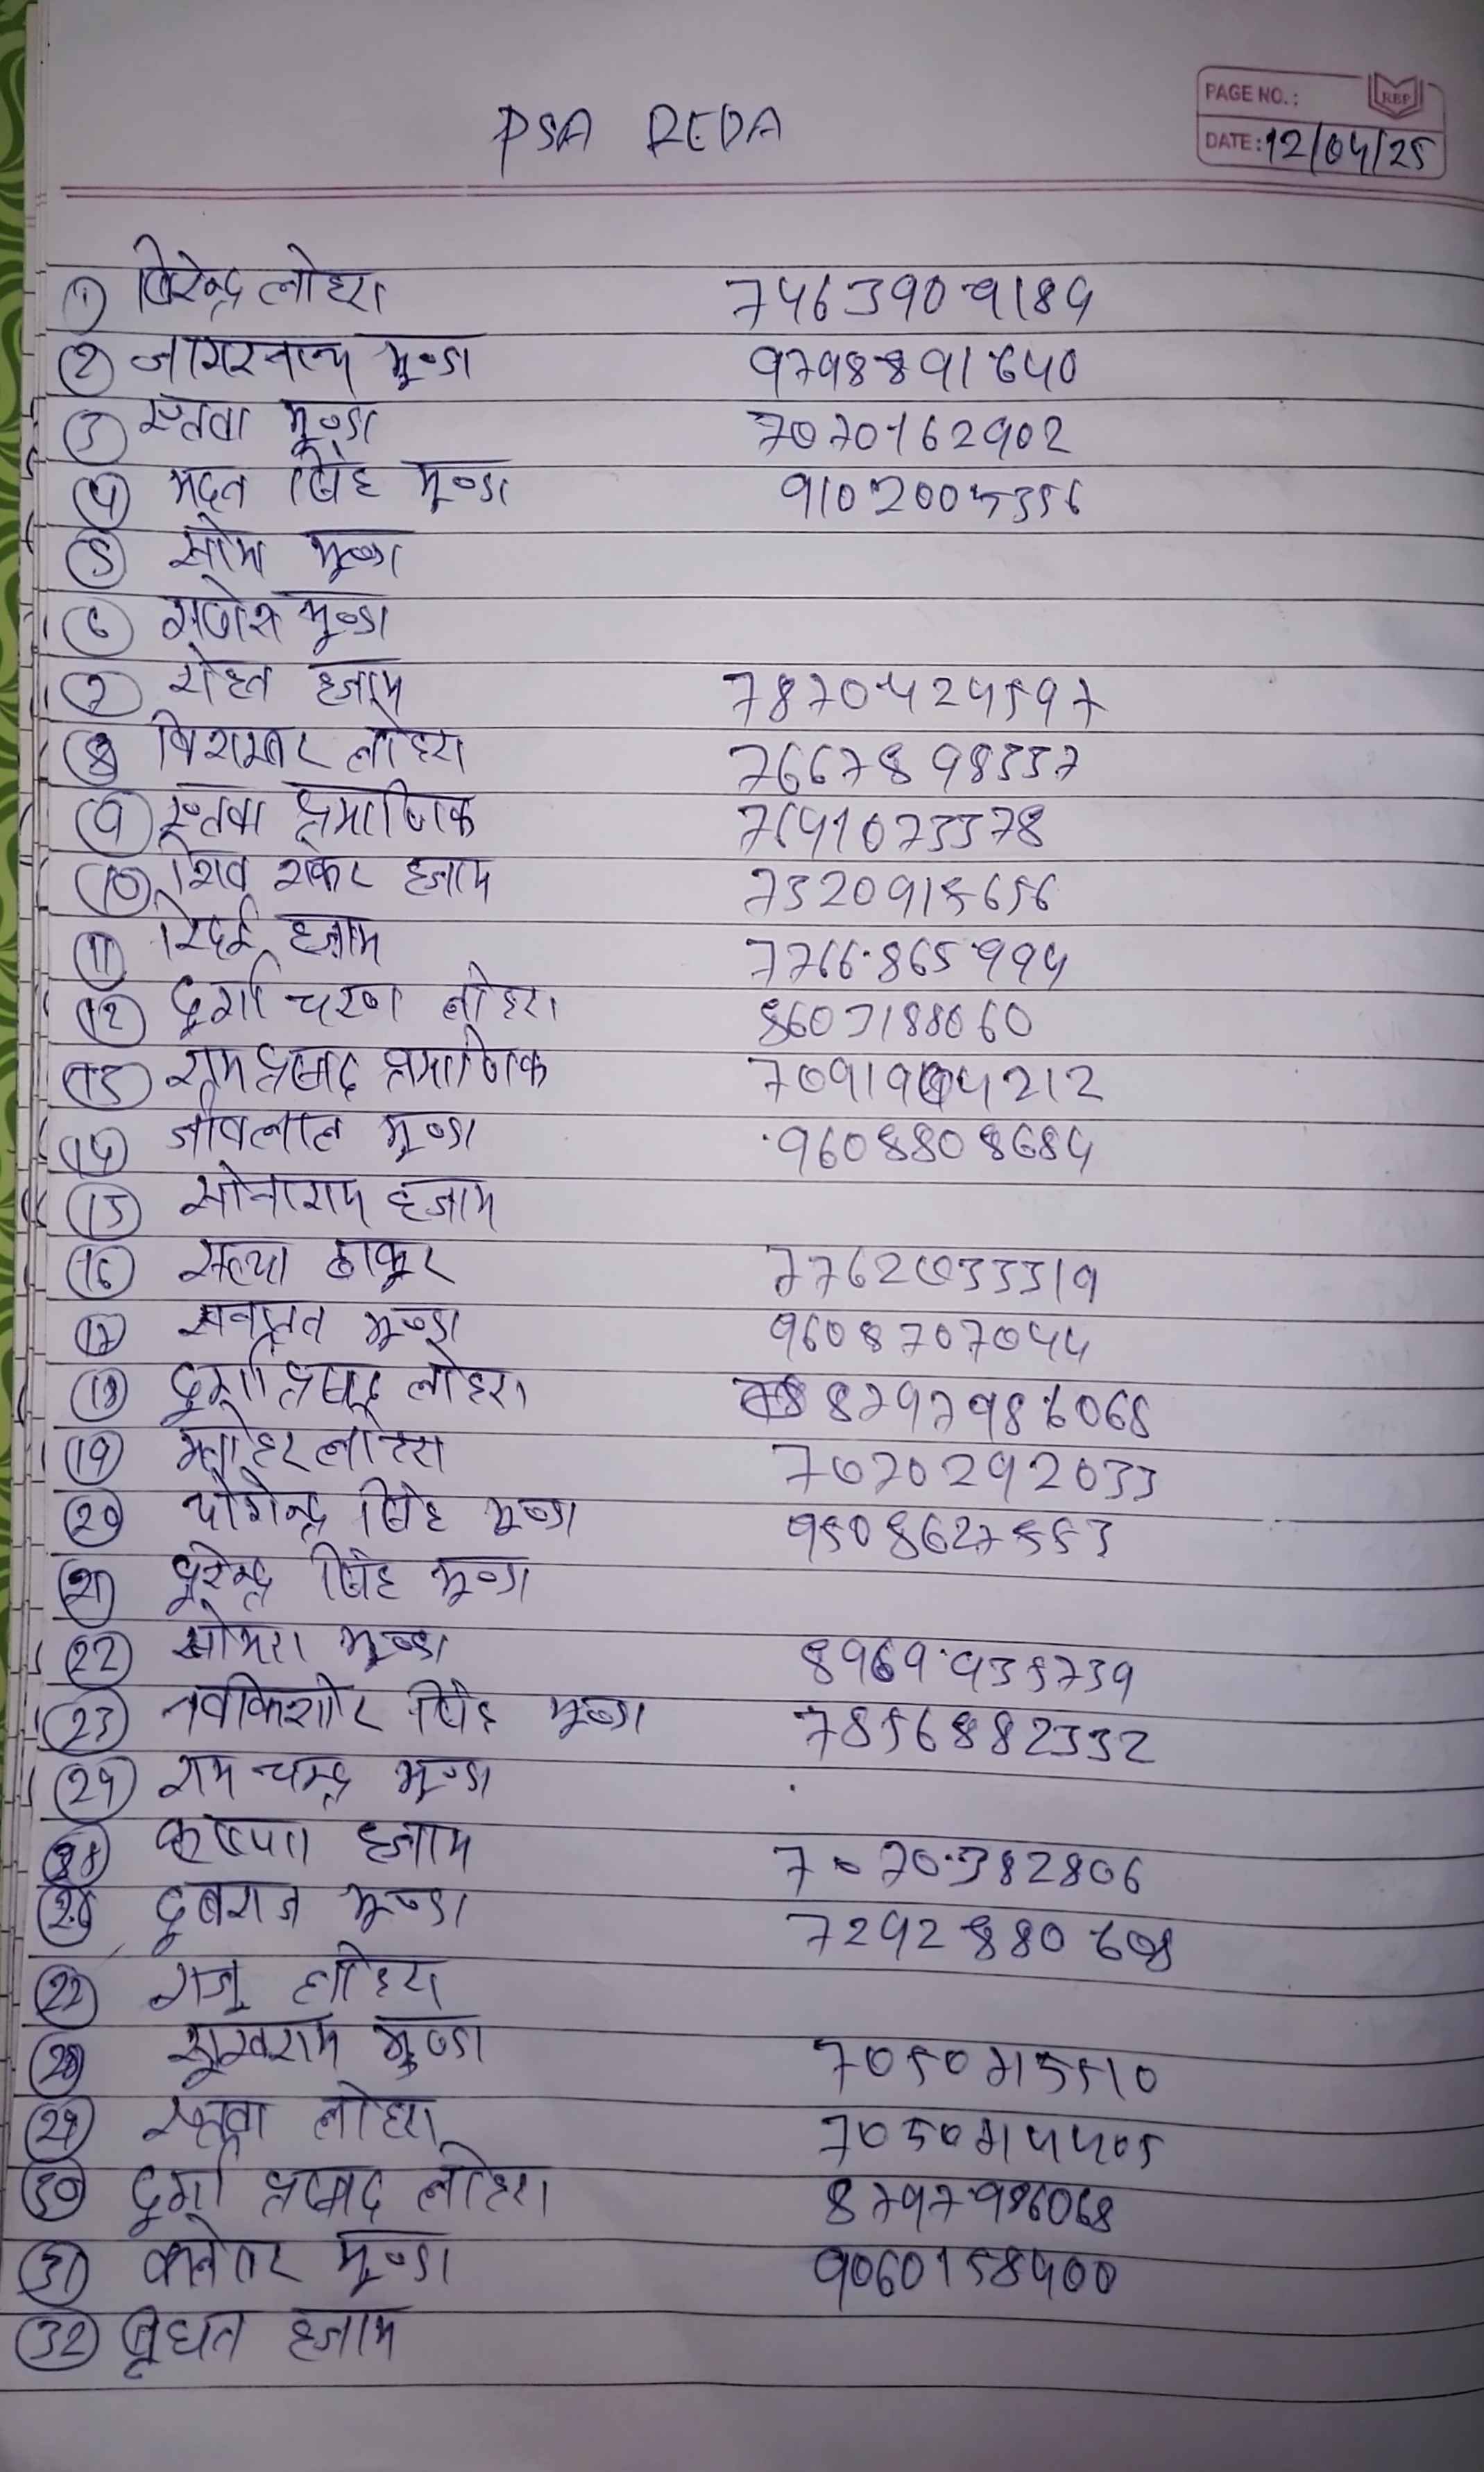 PSA REDA
PAGE NO.:
RBP
DATE: 12/04/25
1 बिरेन्द्र लोहरा 7463909184
2 जागरनाथ मुण्डा 9798891640
3 मुण्डा 7070162902
4 मदन सिंह मुण्डा 9102005356
5 सोमा मुण्डा
6 गणेश मुण्डा
7 रोहन हजाम 7870424597
8 लोहरा 7667898337
9 प्रमाणिक 7691073378
10 शिव शंकर हजाम 7320915656
11 हजाम 7766865994
12 दुर्गा चरण लोहरा 8603188060
13 रामप्रसाद प्रमाणिक 7091904212
14 जीवलाल मुण्डा 9608808684
15 सोनाराम हजाम
16 ठाकुर 7762033319
17 मुण्डा 9608707044
18 दुर्गा प्रसाद लोहरा 8797986068
19 लोहरा 7070292033
20 योगेन्द्र सिंह मुण्डा 9508627553
21 धुरेन्द्र सिंह मुण्डा
22 सोमरा मुण्डा 8969935739
23 नवकिशोर सिंह मुण्डा 7856882332
24 राम चन्द्र मुण्डा
हजाम 7070382806
26 दुबराज मुण्डा 7292880608
27 राजु लोहरा
28 सुखराम मुण्डा
29 लोहरा
30 दुर्गा प्रसाद लोहरा 8797986068
31 मुण्डा 9060158400
32 बुधन हजाम